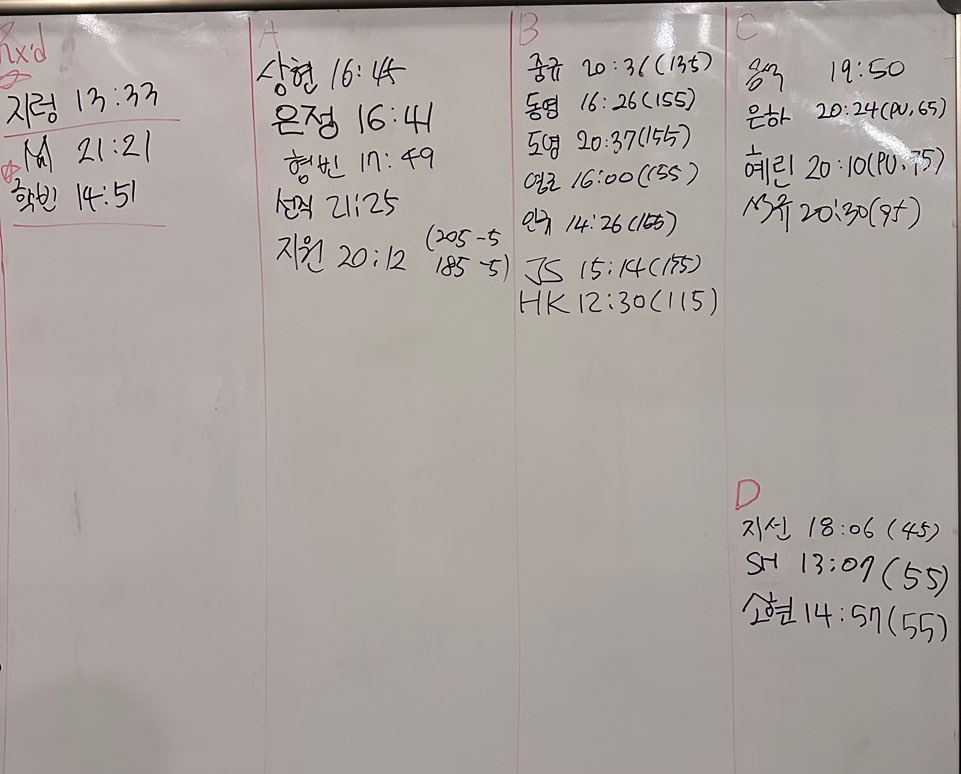 Rx'd
지렁 13:33
21:21
학빈 14:51
A
상현 16:45
은정 16:41
형빈 17:49
선직 21:25
지원 20:12 (205-5
185-5)
B
중규 20:36(135)
동영 16:26(155)
도영 20:37(155)
16:00(155)
14:26(155)
JS 15:14(155)
HK 12:30(115)
C
19:50
은하 20:24(PU,65)
혜린 20:10(PU,75)
석규 20:30(95)
D
지선 18:06 (45)
SH 13:07 (55)
소현 14:57(55)